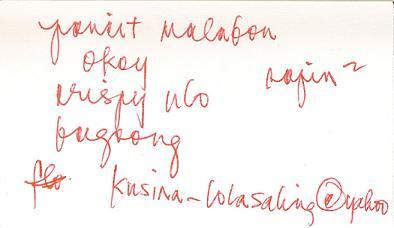 pancit malabon
okoy
crispy ulo
bagoong
kusina-lolasaling@yahoo